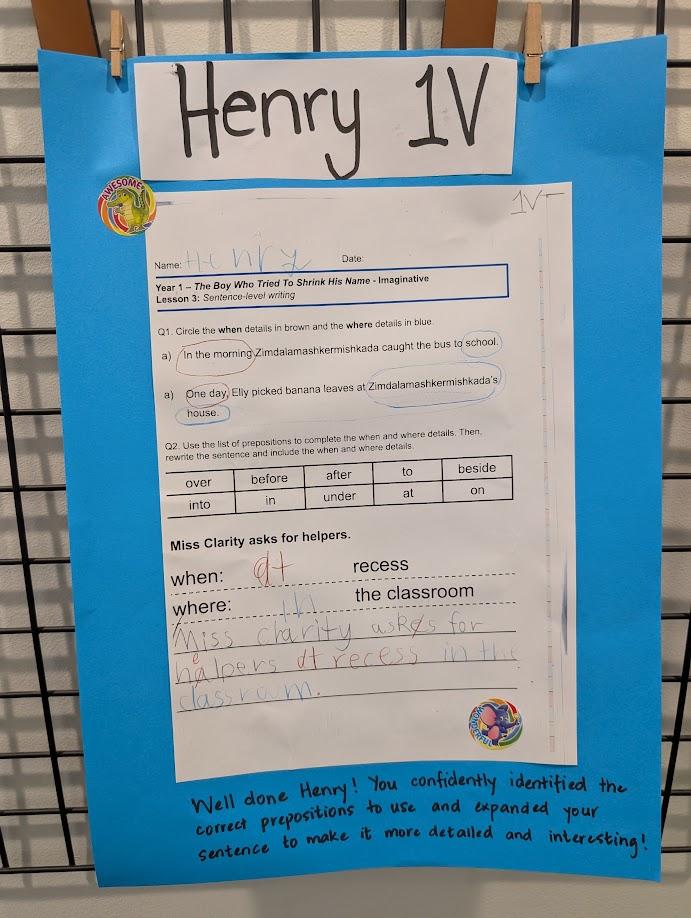 Henry 1V
AWESOME!
1V
Name: Henry Date:
Year 1 – The Boy Who Tried To Shrink His Name - Imaginative
Lesson 3: Sentence-level writing
Q1. Circle the when details in brown and the where details in blue.
a) In the morning Zimdalamashkermishkada caught the bus to school.
a) One day, Elly picked banana leaves at Zimdalamashkermishkada's
house.
Q2. Use the list of prepositions to complete the when and where details. Then,
rewrite the sentence and include the when and where details.
over before after to beside
into in under at on
Miss Clarity asks for helpers.
when: at recess
where: in the classroom
Miss clarity asks for
helpers at recess in the
classroom.
WONDERFUL
Well done Henry! You confidently identified the
correct prepositions to use and expanded your
sentence to make it more detailed and interesting!